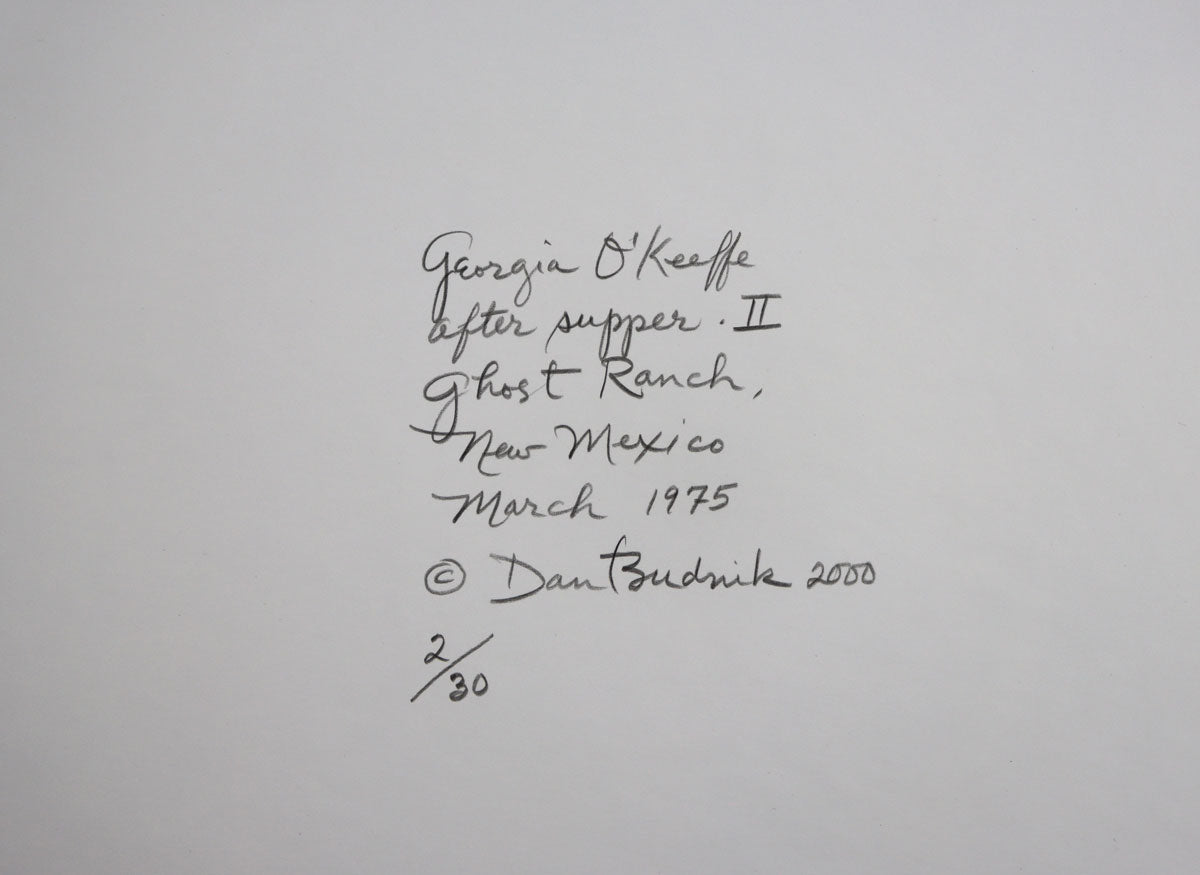 Georgia O'Keeffe
after supper. II
Ghost Ranch,
New Mexico
March 1975
© Dan Budnik 2000
2/30